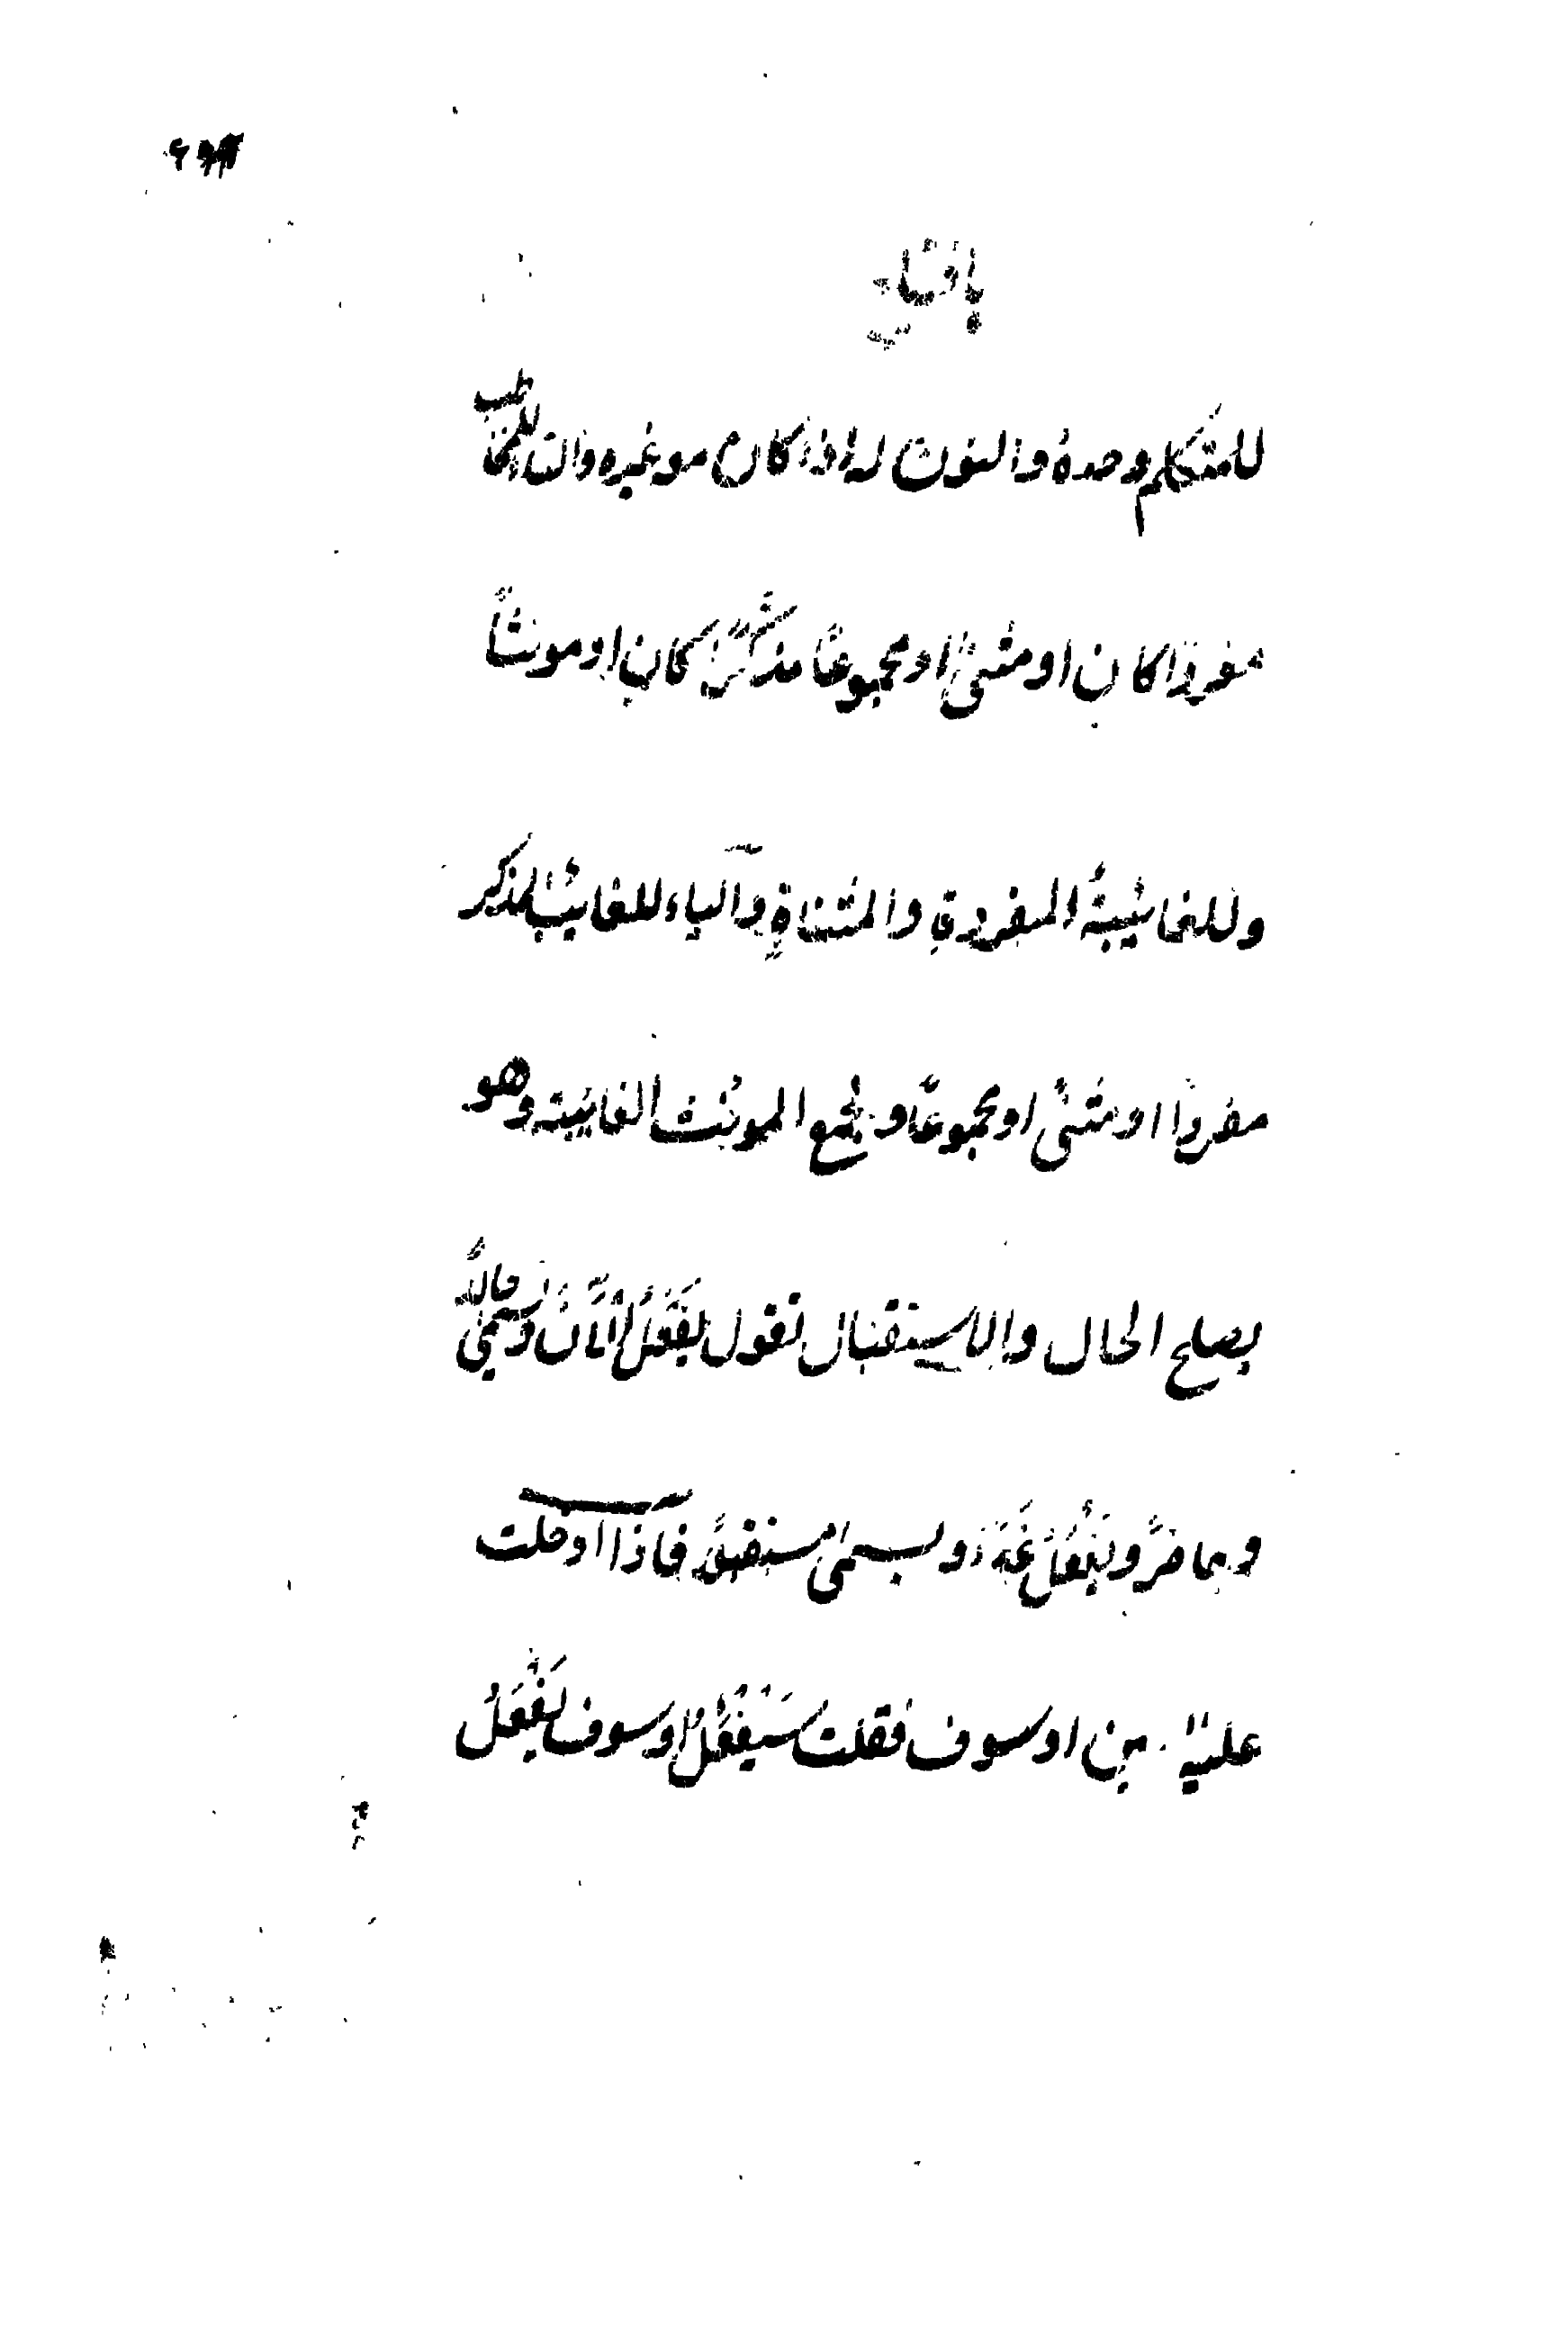 للمتكلم وحدهُ والنون له اذا كان مع غيره والتا للمخاطب
مفرداً كان او مثنىً او مجموعاً مذكَّرًا كان او مونثاً
وللغائبةِ المفردةِ والمثناةِ والياء للغايب المذكر
مفرداً او مثنىً او مجموعًا ولجمع المونث الغايبة وهو
يصلح الحال والاستقبال تقول يَفْعَلُ اْلآنَ ويسمى حالاً
وحاضرًا ويَفْعَلُ غَدًا ويسمى مستقبلاً فاذا ادخلت
عليه او سوف فقلت سَيَفْعَلُ او سوف يَفْعَلُ